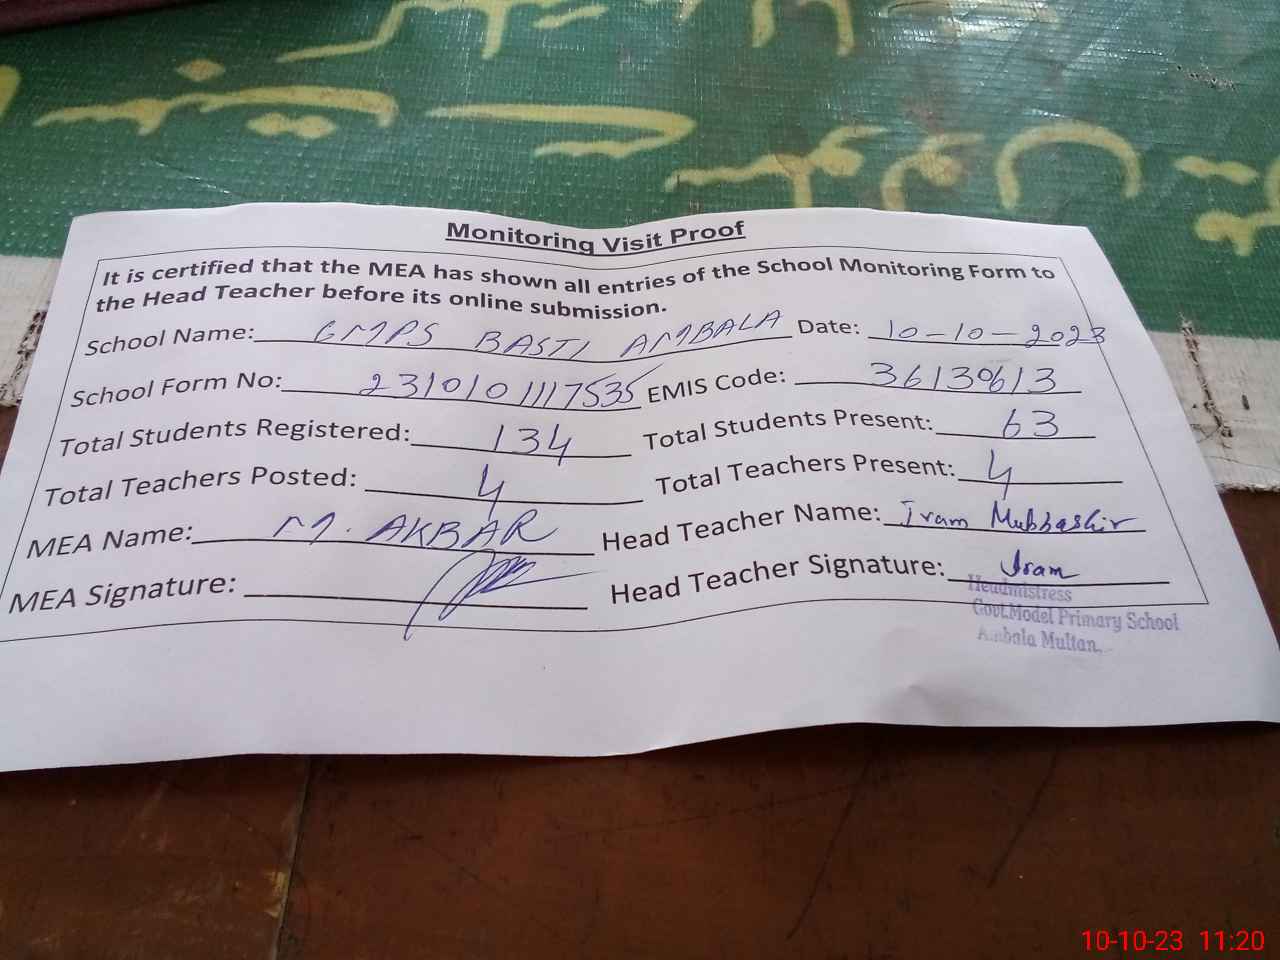 Monitoring Visit Proof
It is certified that the MEA has shown all entries of the School Monitoring Form to
the Head Teacher before its online submission.
School Name: GMPS BASTI AMBALA Date: 10-10-2023
School Form No: 2310101117535 EMIS Code: 36130613
Total Students Registered: 134 Total Students Present: 63
Total Teachers Posted: 4 Total Teachers Present: 4
MEA Name: M. AKBAR Head Teacher Name: Iram Mubbashir
MEA Signature: Head Teacher Signature: Iram
Headmistress
Govt.Model Primary School
Ambala Multan.
10-10-23 11:20